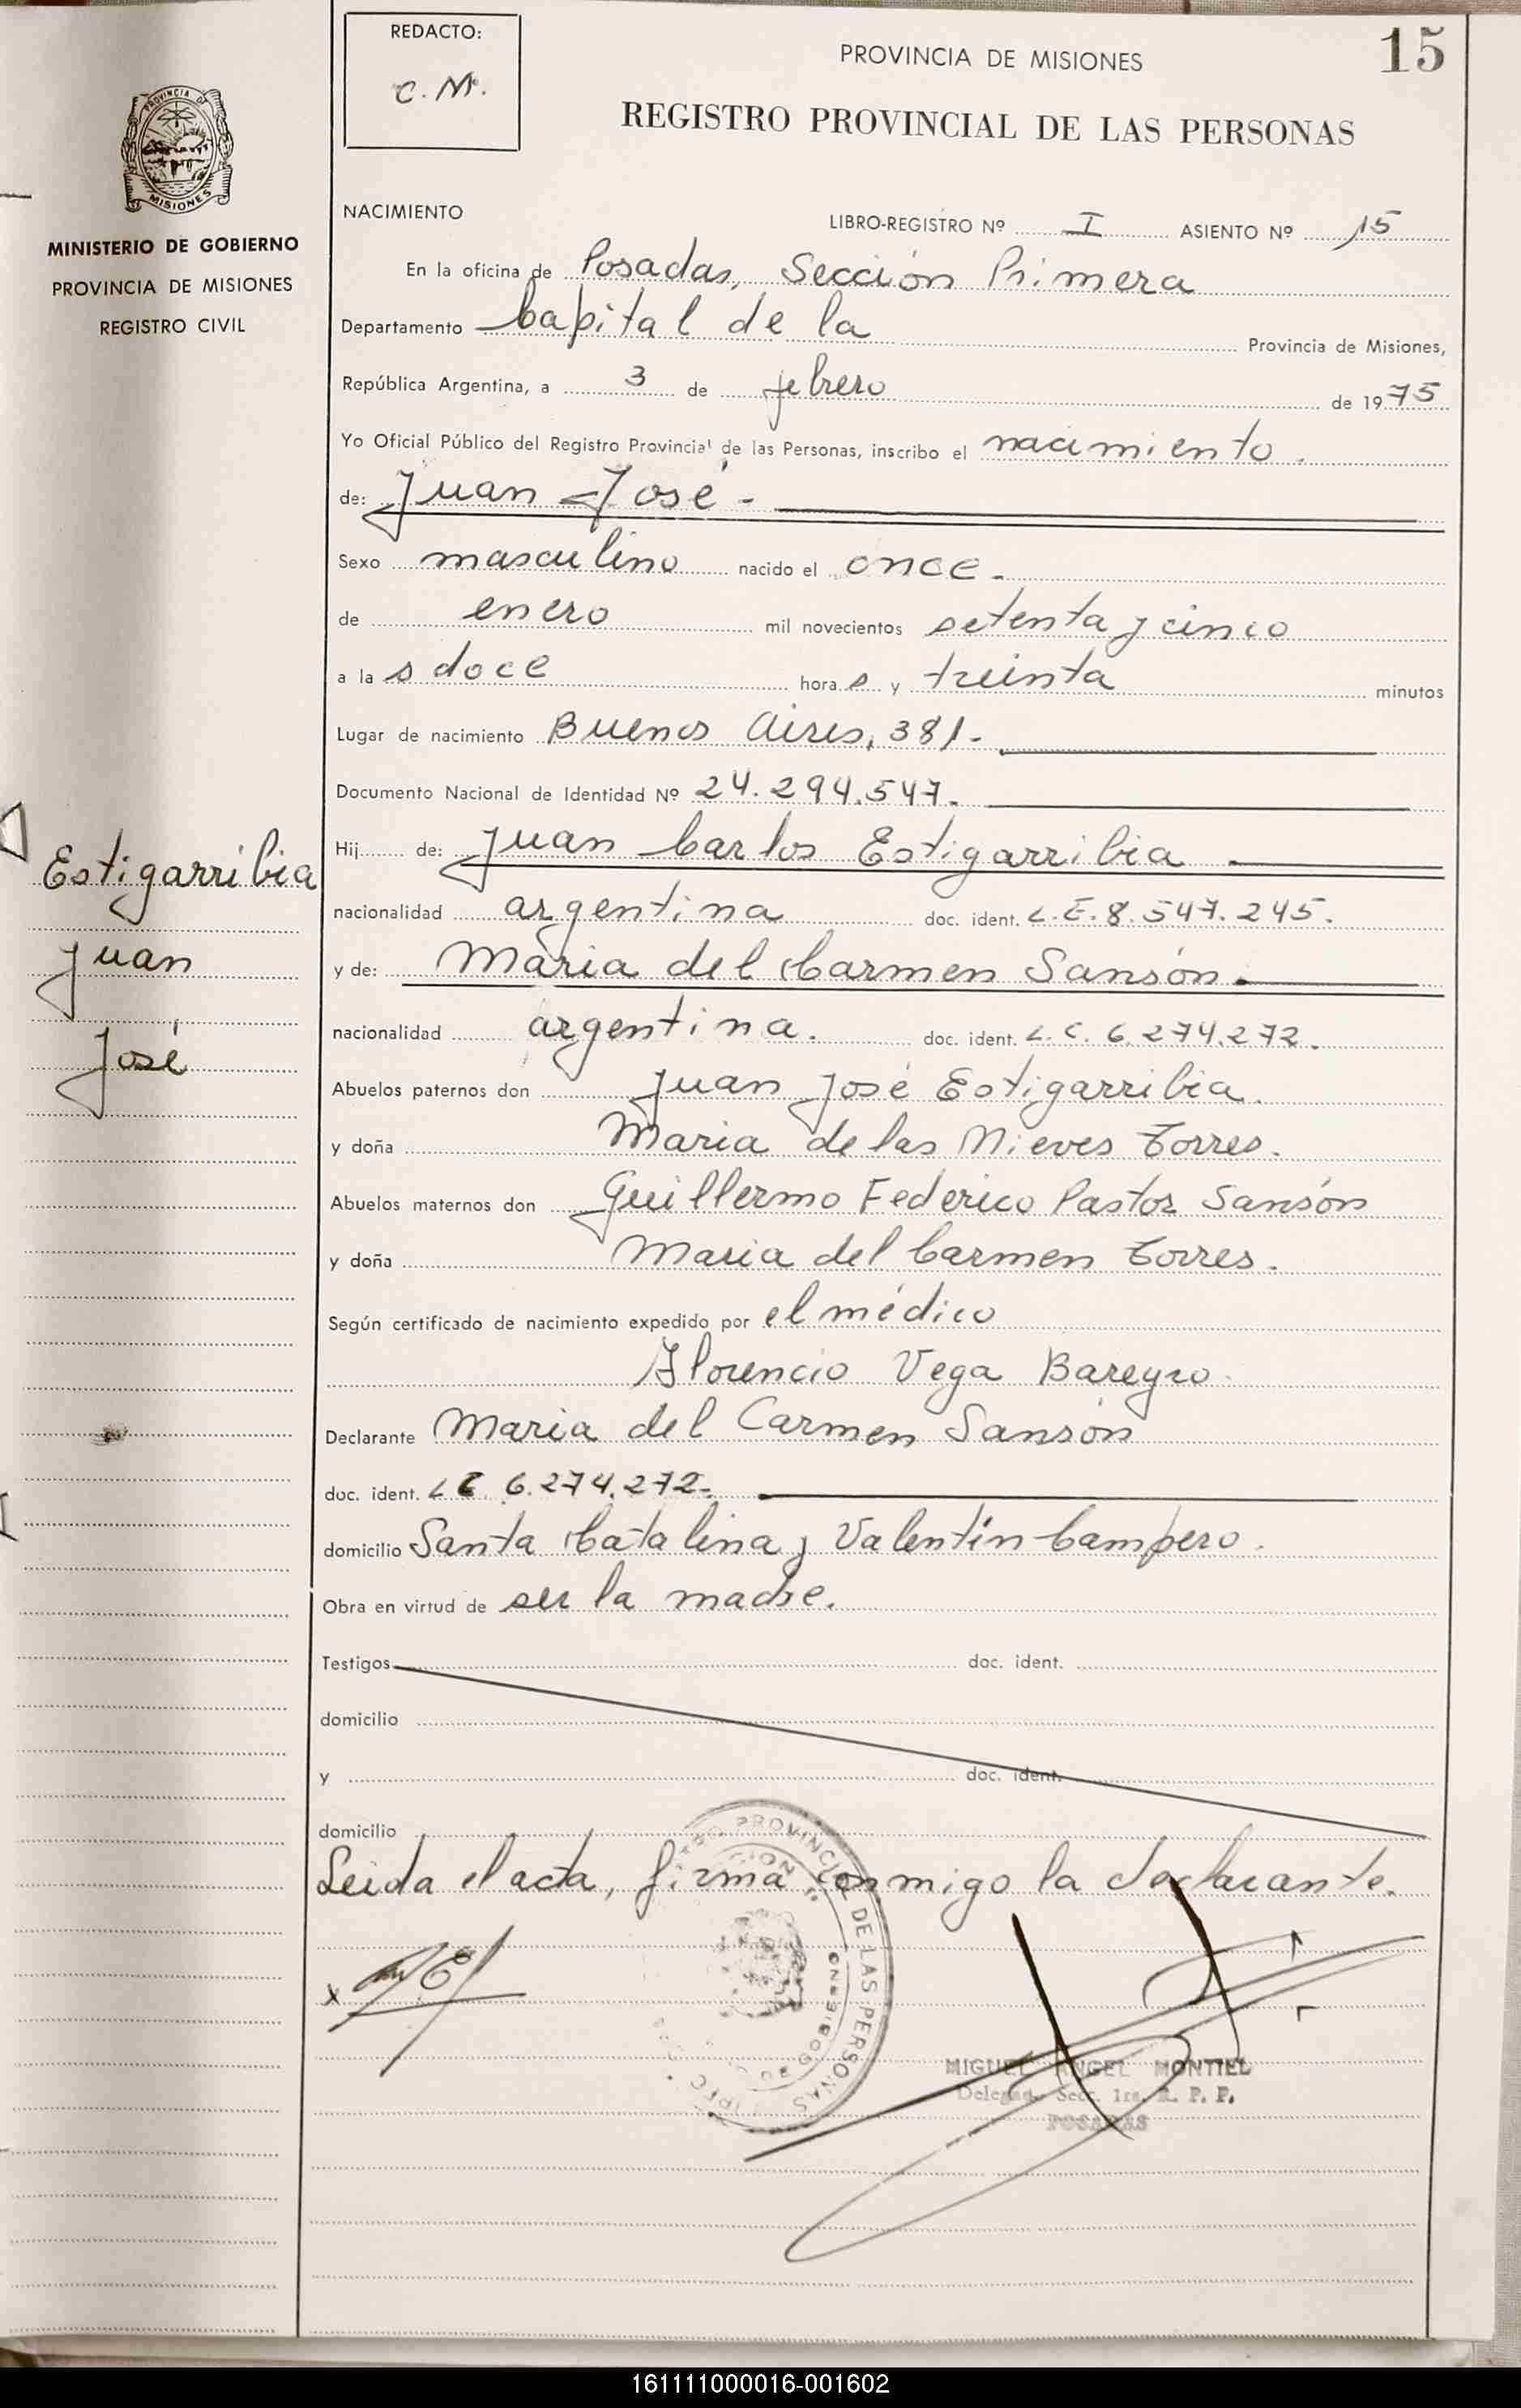 REDACTO:
C. M.
PROVINCIA DE MISIONES
15
REGISTRO PROVINCIAL DE LAS PERSONAS
PROVINCIA DE MISIONES
MINISTERIO DE GOBIERNO
PROVINCIA DE MISIONES
REGISTRO CIVIL
NACIMIENTO
LIBRO-REGISTRO Nº I ASIENTO Nº 15
En la oficina de Posadas, Sección Primera
Departamento Capital de la Provincia de Misiones,
República Argentina, a 3 de febrero de 1975
Yo Oficial Público del Registro Provincial de las Personas, inscribo el nacimiento.
de: Juan José -
Sexo masculino nacido el once.
de enero mil novecientos setenta y cinco
a la s doce hora s y treinta minutos
Lugar de nacimiento Buenos Aires, 381.-
Documento Nacional de Identidad Nº 24.294.547.
Estigarribia
Juan
José
Hij de: Juan Carlos Estigarribia
nacionalidad argentina doc. ident. L.E. 8.547.245.
y de: Maria del Carmen Sansón.
nacionalidad argentina. doc. ident. L.C. 6.274.272.
Abuelos paternos don Juan José Estigarribia.
y doña Maria de las Nieves Torres.
Abuelos maternos don Guillermo Federico Pastor Sansón
y doña Maria del Carmen Torres.
Según certificado de nacimiento expedido por el médico
Florencio Vega Bareyro.
Declarante Maria del Carmen Sansón
doc. ident. L C. 6.274.272-
domicilio Santa Catalina y Valentín Campero.
Obra en virtud de ser la madre.
Testigos doc. ident.
domicilio
y doc. ident.
domicilio
Leida el acta, firma conmigo la declarante.
x
PROVINCIAL DE LAS PERSONAS
MIGUEL ANGEL MONTIEL
Delegado Secc. 1ra. R. P. P.
POSADAS
161111000016-001602